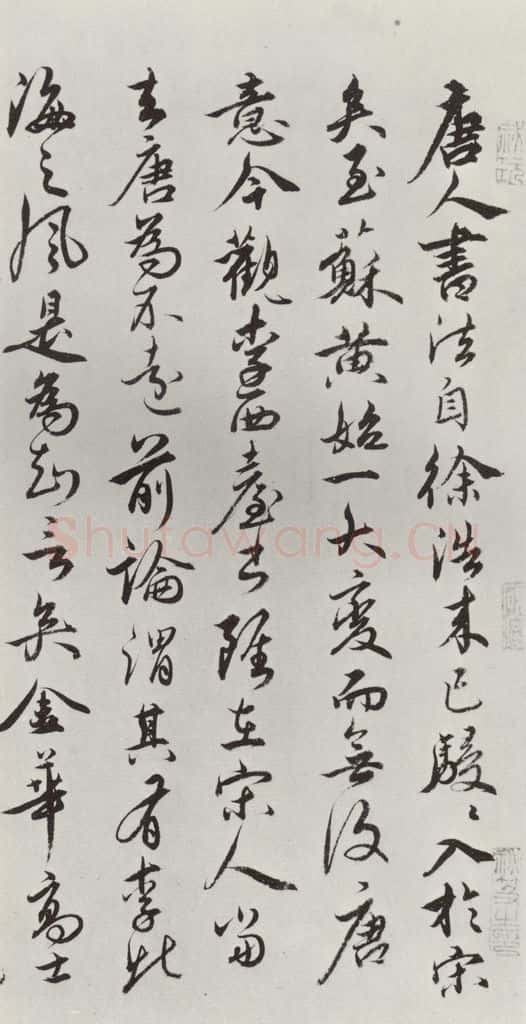 唐人書法自徐浩來已駸〻入於宋
矣至蘇黃始一大變而無復唐
意今觀李西臺書雖在宋人當
去唐為不遠前論謂其有李北
海之風是為知言矣金華高士
Shufawang.CN